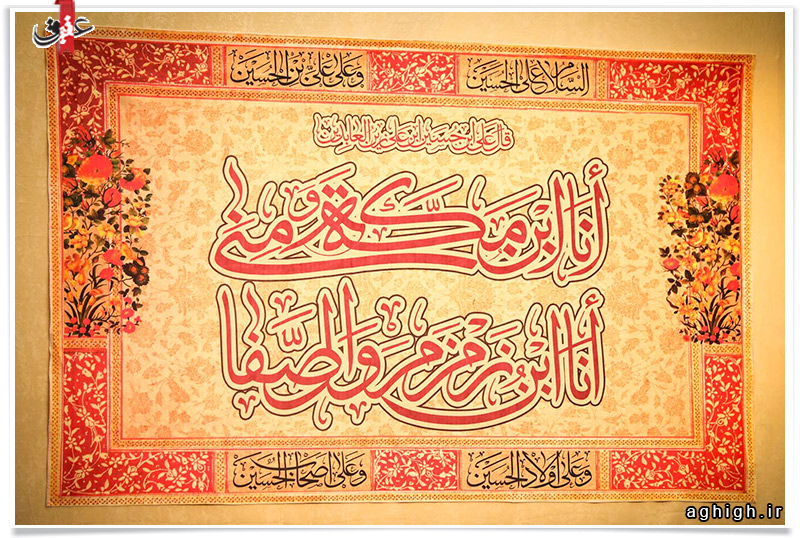 عقیق
السلام علی الحسین
وعلی علی بن الحسین
قال علی ابن حسین ابن علی زین العابدین
أنا ابن مكة ومنى
أنا ابن زمزم والصفا
وعلی اولاد الحسین
وعلی اصحاب الحسین
aghigh.ir